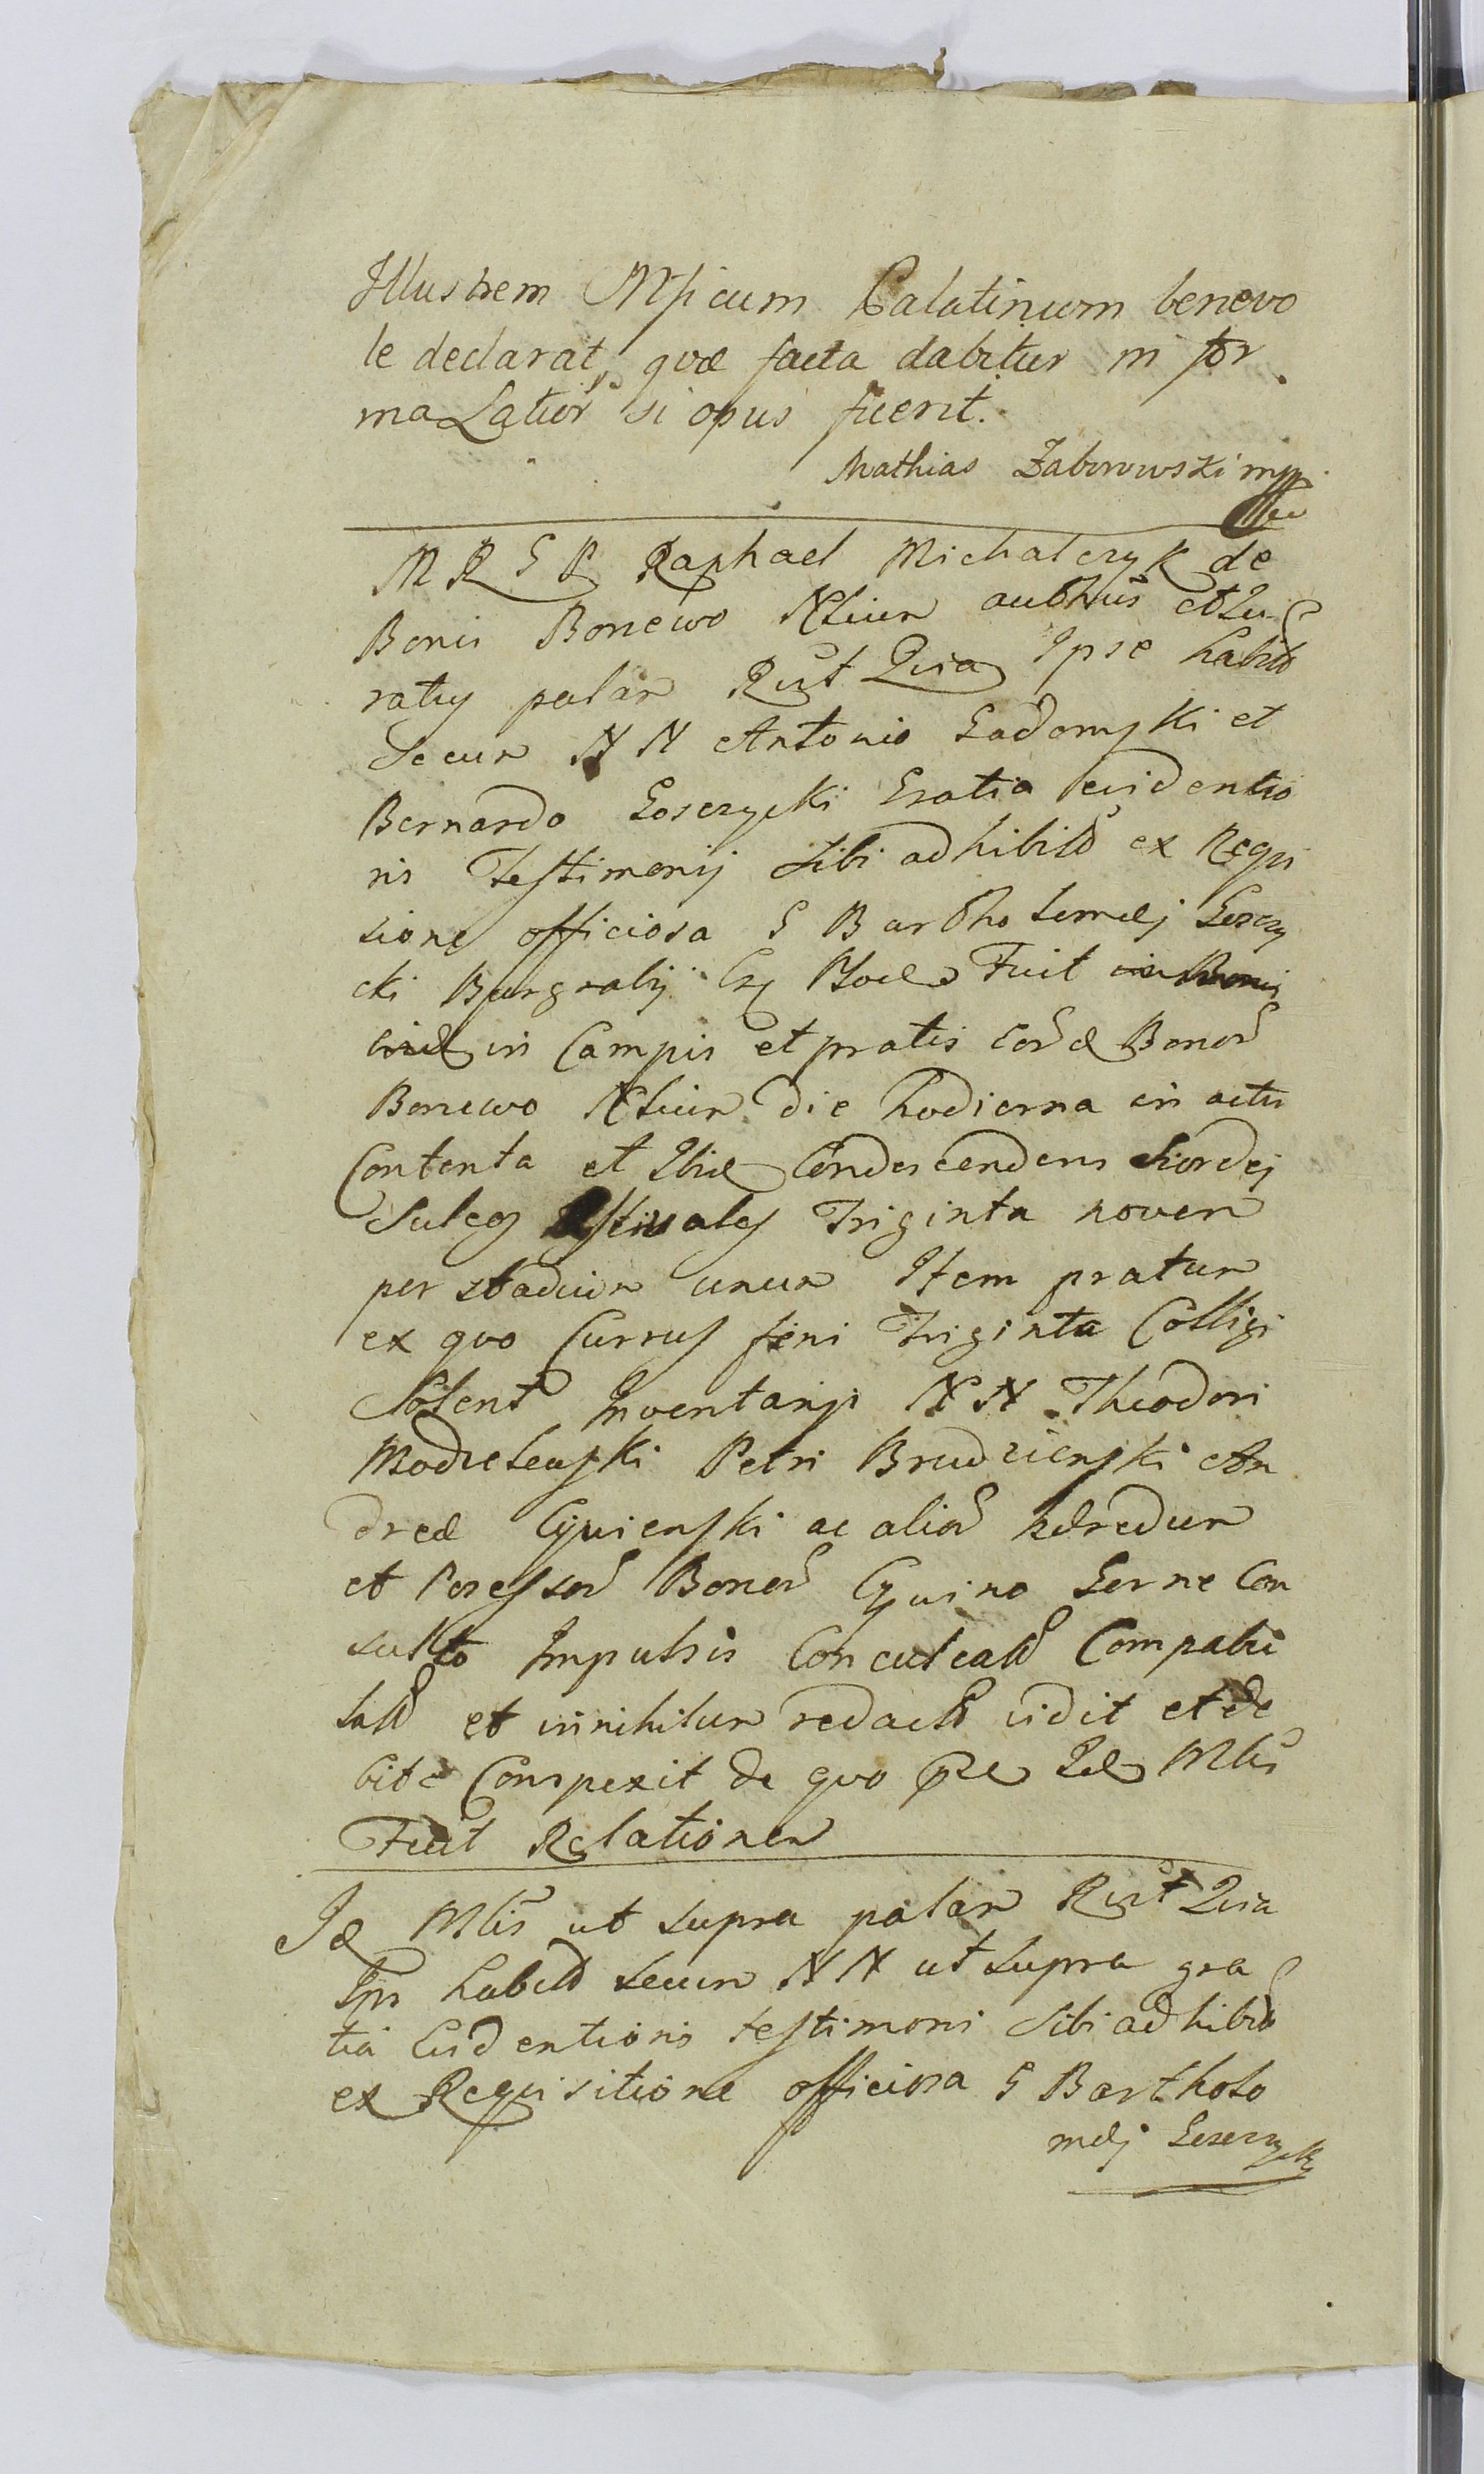 Illustrem Mficum Palatinum benevo
le declarat, quæ facta dabitur in for
ma Latiori si opus fuerit.
Mathias Zaborowski mpp
M R G P Raphael Michalczyk de
Bonis Bonewo Ntium authus et Ju
ratus palam Rust Quia Ipse habitis
Secum N N Antonio Sadomski et
Bernardo Goserzycki Gratia evidentio
ris Testimonij sibi adhibitis ex Requi
sione officiosa G Bartholemæj Goserzy
cki Burgrabij Fuit
in Campis et pratis eord Bonor
Bonewo Ntium die hodierna in actu
Contenta et Ibid Condescendens Siordej
Sulcos Æstivales Triginta novem
per stadium unum Item pratum
ex quo Currus feni Triginta Colligi
Solent Inventarijs N N Theodori
Modzelewski Petri Brudzienski An
dreæ Cywienski ac alior hæredum
et Possessor Bonor Cywino Gorne Con
sulto Impulsis Conculcatis Compabu
latis et in nihilum redactis vidit et de
bite Conspexit de quo præ Id Mlis
Fecit Relationem
Id Mlis ut supra palam Rust Quia
Ips habitis secum N N ut supra gra
tia Evidentioris testimoni Sibi adhibitis
ex Requisitione officiosa G Bartholo
mæj Goserzycki